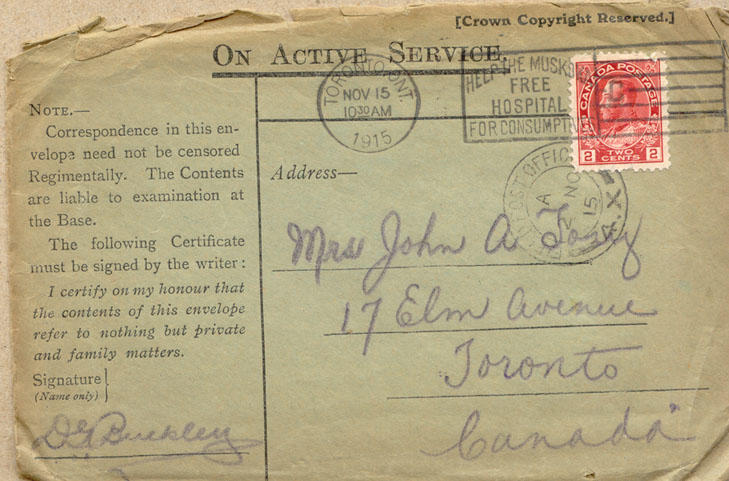 [Crown Copyright Reserved.]
ON ACTIVE SERVICE.
TORONTO, ONT.
NOV 15
10 30 AM
1915
HELP THE
FREE
HOSPITAL
FOR
CANADA POSTAGE
2 TWO CENTS 2
POST OFFICE
A
NO
15
NOTE.—
Correspondence in this en-
velope need not be censored
Regimentally. The Contents
are liable to examination at
the Base.
The following Certificate
must be signed by the writer:
I certify on my honour that
the contents of this envelope
refer to nothing but private
and family matters.
Signature
(Name only)
Buckley
Address—
Mrs John A
17 Elm Avenue
Toronto
Canada